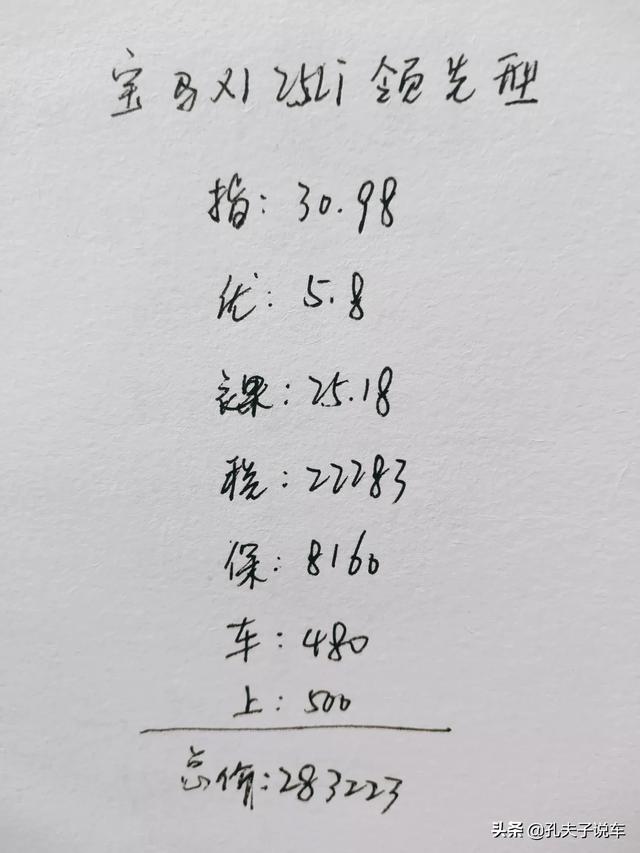 宝马X1 25Li 领先型
指: 30.98
优: 5.8
裸: 25.18
税: 22283
保: 8160
车: 480
上: 500
总价: 283223
头条 @孔夫子说车